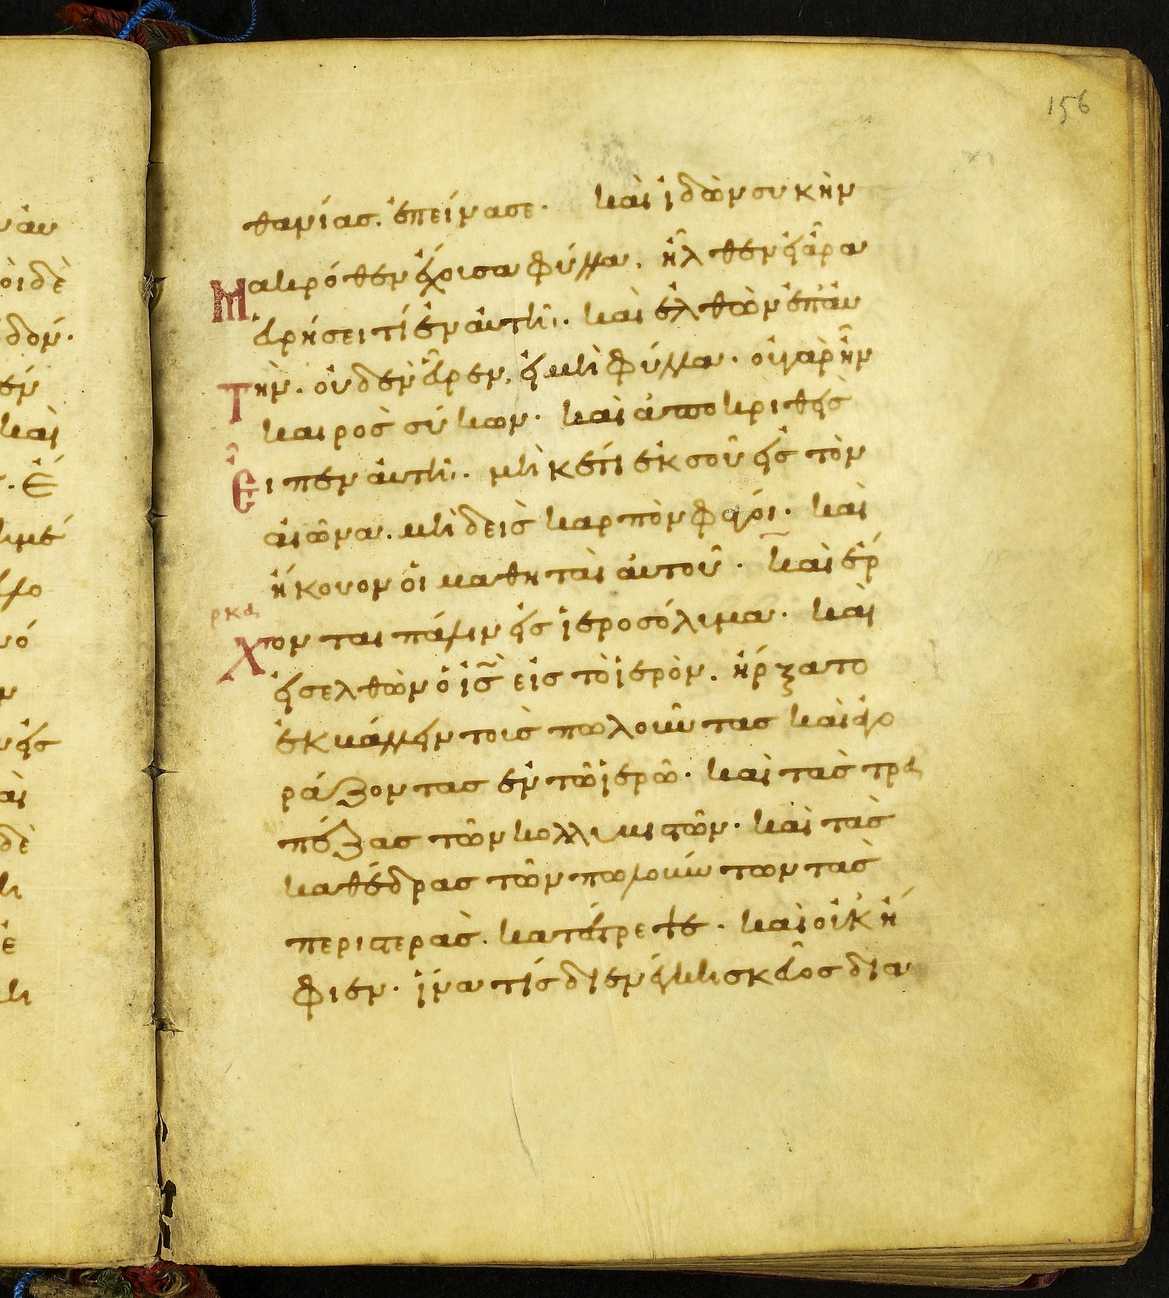 156
θανίας. ἐπείνασε· καὶ ἰδὼν συκὴν
Μακρόθεν ἔχοισα φύλλα, ἦλθεν εἰ ἄρα
εὑρήσει τί ἐν αὐτῆ· καὶ ἐλθὼν ἐπ' αὐ
Τὴν· οὐδὲν εὗρεν, εἰ μὴ φύλλα· οὐ γὰρ ἦν
καιρὸς σύκων· καὶ ἀποκριθεὶς
Εἶπεν αὐτῆ· μὴ κέτι ἐκ σοῦ εἰς τὸν
αἰῶνα. μὴ δεὶς καρπὸν φάγοι· καὶ
ἤκουον οἱ μαθηταὶ αὐτοῦ· καὶ ἔρ
ρκα
Χονται πάλιν εἰς ἱεροσόλιμα· καὶ
εἰσελθὼν ὁ ις εἰς τὸ ἱερὸν. ἤρξατο
ἐκβάλλειν τοὺς πωλοῦντας καὶ ἀγο
ράζοντας ἐν τῶ ἱερῶ· καὶ τὰς τρα
πέζας τῶν κολλυβιτῶν· καὶ τὰς
καθέδρας τῶν πωλούντων τὰς
περιστερὰς. κατέτρεψε· καὶ οὐκ ἤ
φιεν· ἵνα τίς διενέγκη σκεῦος δια